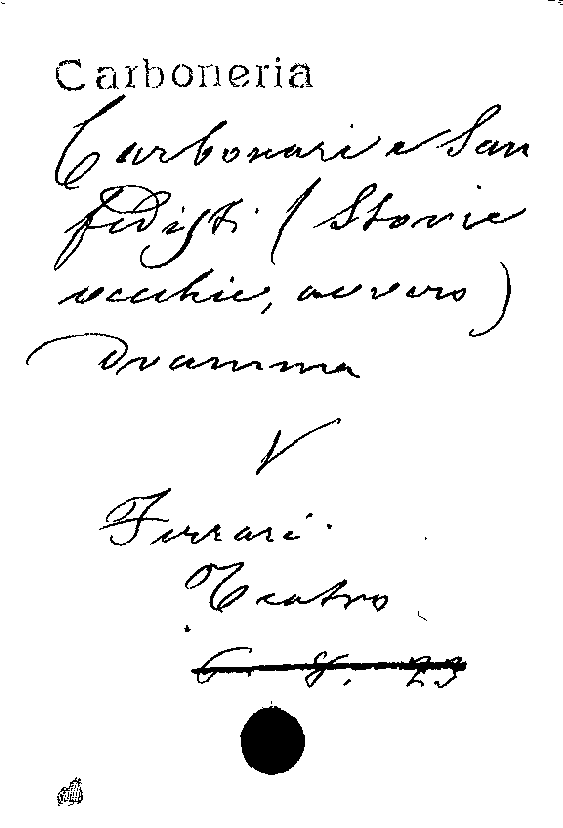 Carboneria
Carbonari e San
fedisti (Storie
vecchie, ovvero)
dramma
V
Ferrari.
Teatro